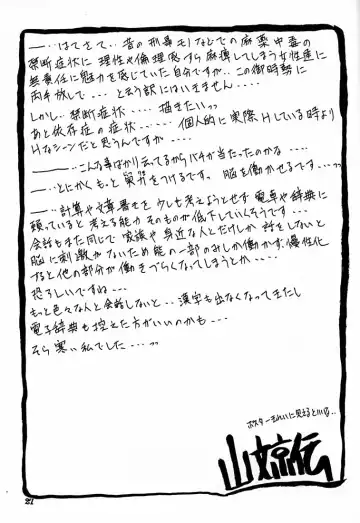 ―――..はてさて.. 昔の刑事モノなどでの麻薬中毒の
禁断症状に 理性や倫理感すら麻痺してしまう女性達に
無責任に魅力を感じていた自分ですが.. この御時勢に
両手放しで ‥‥ と言う訳にはいきません‥‥.
しかし.. 禁断症状 ‥‥. 描きたいっっ
あと依存症の症状 ‥‥‥ 個人的に実際Hしている時より
Hなシーンだと思うんですが ‥‥
―――‥‥こんな事ばかり云ってるからバチが当たったのかな ‥‥.
‥‥とにかく もっと
気をつけるです. 脳を働かせるです ‥‥っっ
‥‥計算や文章書きを 少しも考えようとせず 電車や辞典に
頼っていると 考える能力 そのものが低下していくそうです ‥‥
会話もまた同じで 家族や身近な人とだけしか 話をしないと
脳に刺激がないため脳の一部のみしか働かず. 慢性化
すると他の部分が働きづらくなってしまうとか ‥‥.
恐ろしいですね ‥‥
もっと色々な人と会話しないと.. 漢字も出なくなってきたし
電子辞典も控えた方がいいのかも ‥‥
そら寒い私でした ‥‥っっ
ポスターきれいに見えるといいな..
山文京伝
21